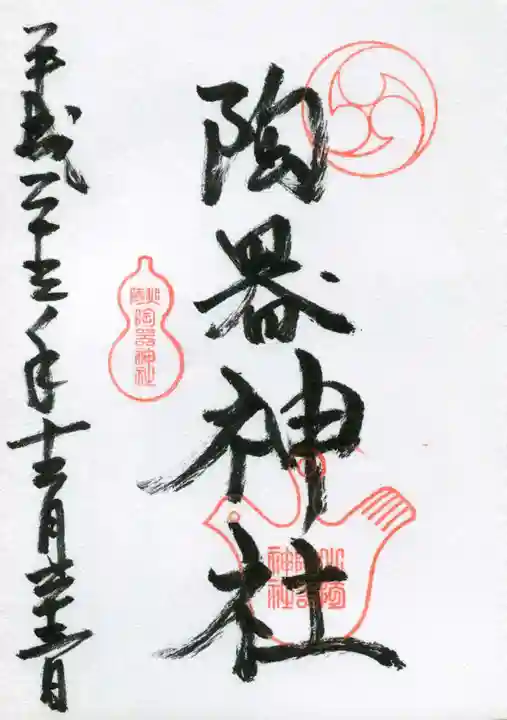 陶器神社
平成二十三年十二月
火防
陶器神社
火防陶器神社